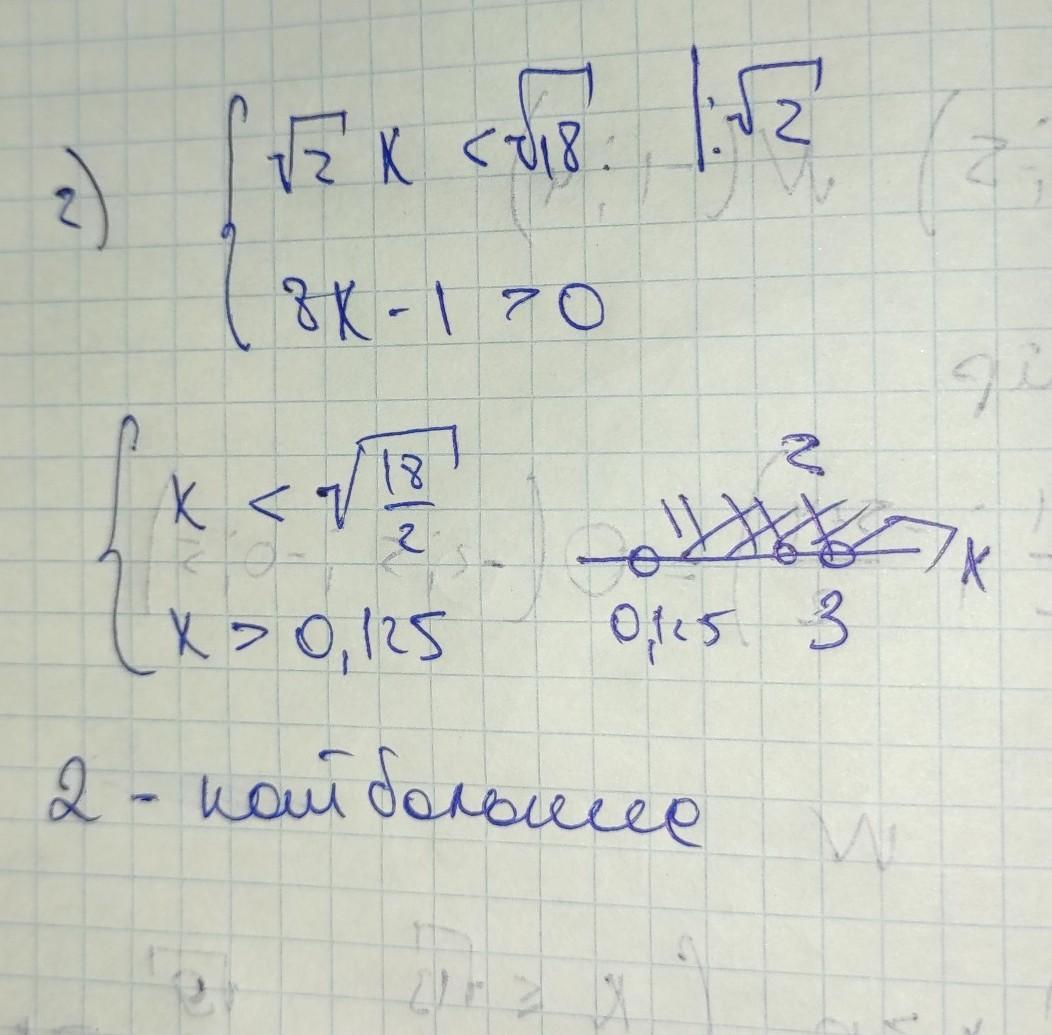 2) { √2 x < √18 | : √2
8x - 1 > 0
{ x < √(18/2)
2
x > 0,125
0,125 3 x
2 - наибольшее